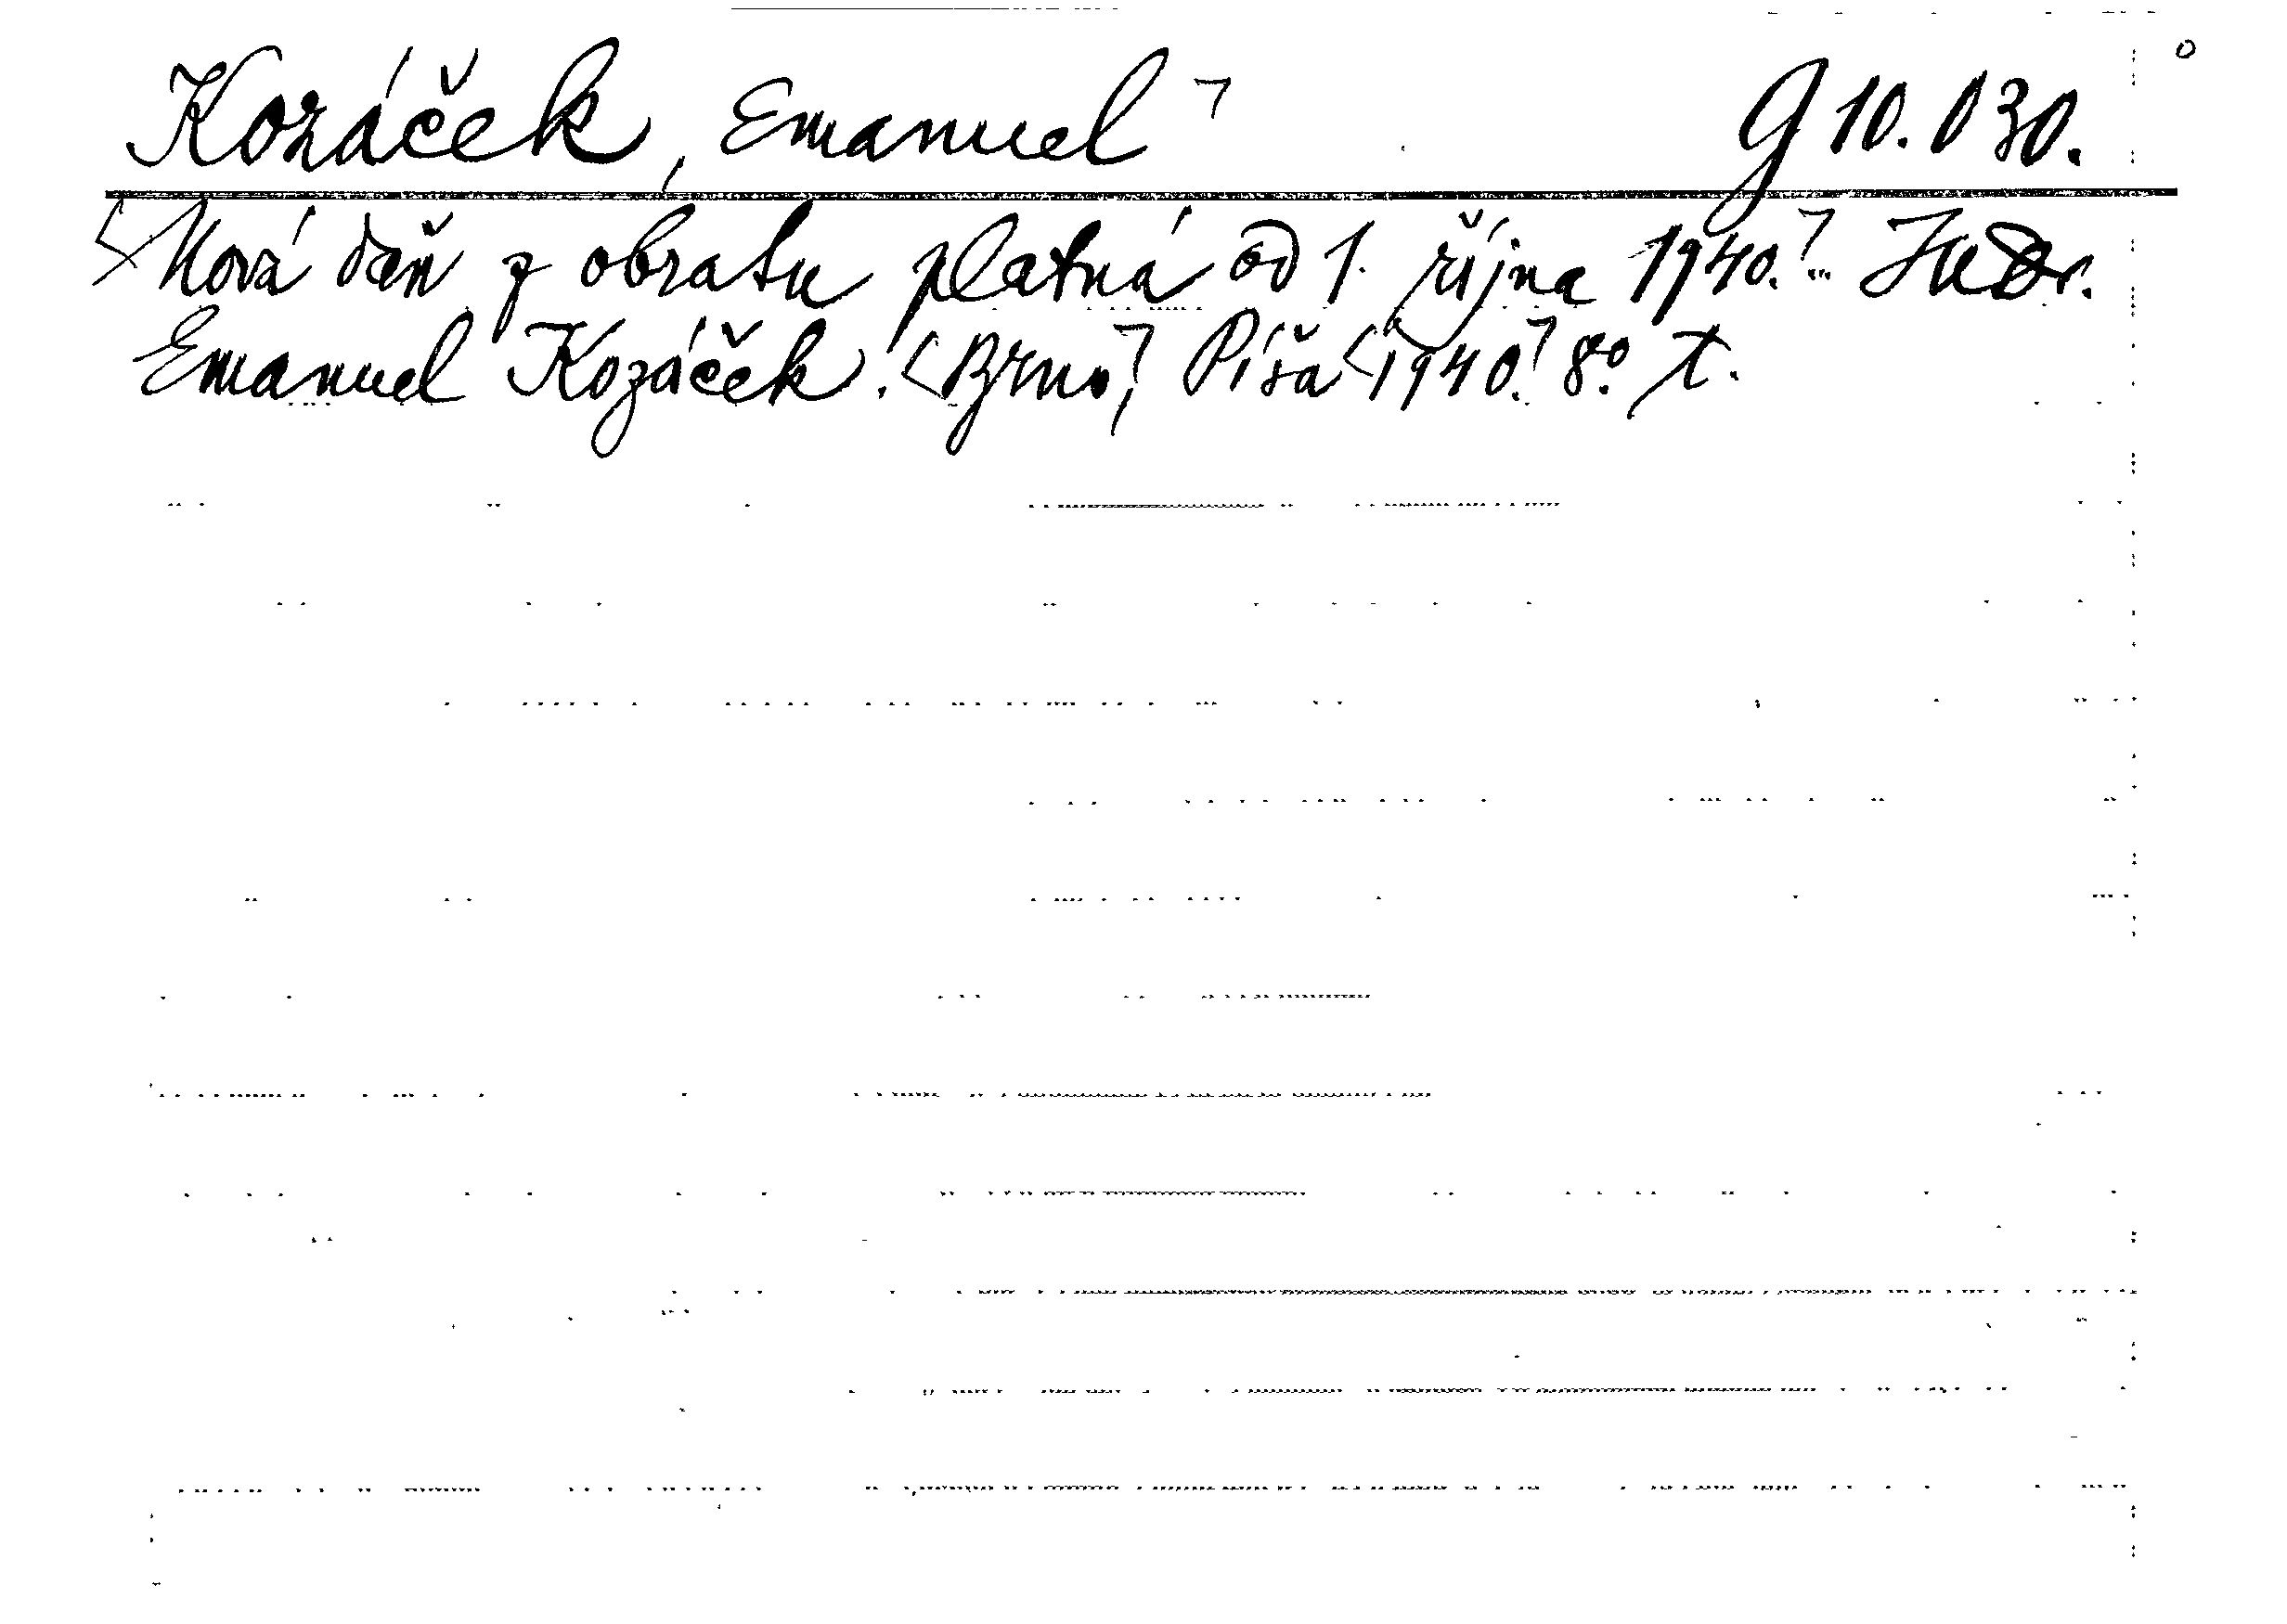 Kozáček, Emanuel ⌝ G 10.030.
Nová daň z obratu platná od 1. října 1940.⌝... JUDr.
Emanuel Kozáček. <Brno,⌝ Píša <1940.⌝ 8.° T.